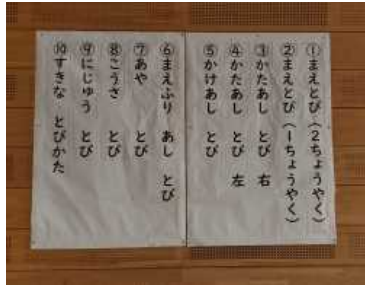 ①まえとび（2ちょうやく）
②まえとび（1ちょうやく）
③かたあし とび 右
④かたあし とび 左
⑤かけあし とび
⑥まえふり あし とび
⑦あや とび
⑧こうさ とび
⑨にじゅう とび
⑩すきな とびかた